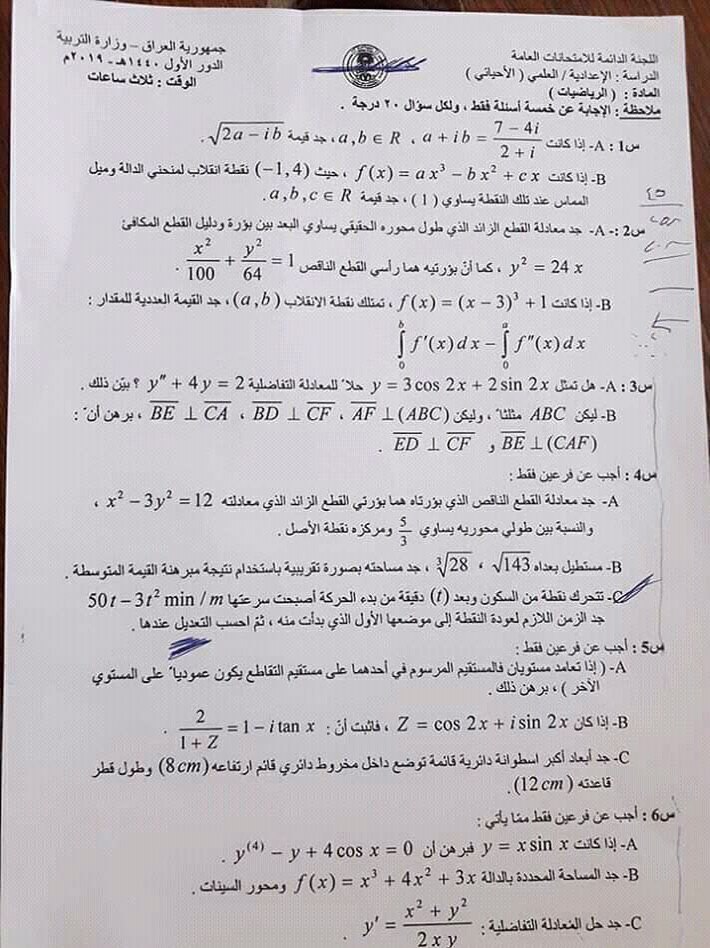 جمهورية العراق - وزارة التربية
الدور الأول ١٤٤٠هـ - ٢٠١٩م
الوقت : ثلاث ساعات
اللجنة الدائمة للامتحانات العامة
الدراسة : الإعدادية / العلمي ( الأحيائي )
المادة : ( الرياضيات )
ملاحظة : الإجابة عن خمسة أسئلة فقط ، ولكل سؤال ٢٠ درجة .
س1 : A- إذا كانت a + ib = \frac{7 - 4i}{2 + i} ، a , b ∈ R ، جد قيمة \sqrt{2a - ib} .
B- إذا كانت f(x) = ax³ - bx² + cx ، حيث (-1, 4) نقطة انقلاب لمنحني الدالة وميل
المماس عند تلك النقطة يساوي ( 1 ) ، جد قيمة a , b , c ∈ R .
س2 :- A- جد معادلة القطع الزائد الذي طول محوره الحقيقي يساوي البعد بين بؤرة ودليل القطع المكافئ
y² = 24 x ، كما أنّ بؤرتيه هما رأسي القطع الناقص \frac{x²}{100} + \frac{y²}{64} = 1 .
B- إذا كانت f(x) = (x - 3)³ + 1 ، تمتلك نقطة الانقلاب (a , b) ، جد القيمة العددية للمقدار :
∫₀ᵇ f′(x) dx - ∫₀ᵃ f″(x) dx
س3 : A- هل تمثل y = 3 cos 2x + 2 sin 2x حلاً للمعادلة التفاضلية y″ + 4y = 2 ؟ بيّن ذلك .
B- ليكن ABC مثلثاً ، وليكن \overline{AF} ⊥ (ABC) ، \overline{BD} ⊥ \overline{CF} ، \overline{BE} ⊥ \overline{CA} ، برهن أنّ :
\overline{BE} ⊥ (CAF) و \overline{ED} ⊥ \overline{CF} .
س4 : أجب عن فرعين فقط :
A- جد معادلة القطع الناقص الذي بؤرتاه هما بؤرتي القطع الزائد الذي معادلته x² - 3y² = 12 ،
والنسبة بين طولي محوريه يساوي \frac{5}{3} ومركزه نقطة الأصل .
B- مستطيل بعداه \sqrt{143} ، \sqrt[3]{28} ، جد مساحته بصورة تقريبية باستخدام نتيجة مبرهنة القيمة المتوسطة .
C- تتحرك نقطة من السكون وبعد (t) دقيقة من بدء الحركة أصبحت سرعتها 50t - 3t² min / m
جد الزمن اللازم لعودة النقطة إلى موضعها الأول الذي بدأت منه ، ثم احسب التعجيل عندها .
س5 : أجب عن فرعين فقط :
A- ( إذا تعامد مستويان فالمستقيم المرسوم في أحدهما على مستقيم التقاطع يكون عمودياً على المستوي
الآخر ) ، برهن ذلك .
B- إذا كان Z = cos 2x + i sin 2x ، فاثبت أنّ : \frac{2}{1 + Z} = 1 - i tan x .
C- جد أبعاد أكبر اسطوانة دائرية قائمة توضع داخل مخروط دائري قائم ارتفاعه (8 cm) وطول قطر
قاعدته (12 cm) .
س6 : أجب عن فرعين فقط ممّا يأتي :
A- إذا كانت y = x sin x فبرهن أن y⁽⁴⁾ - y + 4 cos x = 0 .
B- جد المساحة المحددة بالدالة f(x) = x³ + 4x² + 3x ومحور السينات .
C- جد حل المُعادلة التفاضلية : y′ = \frac{x² + y²}{2xy} .